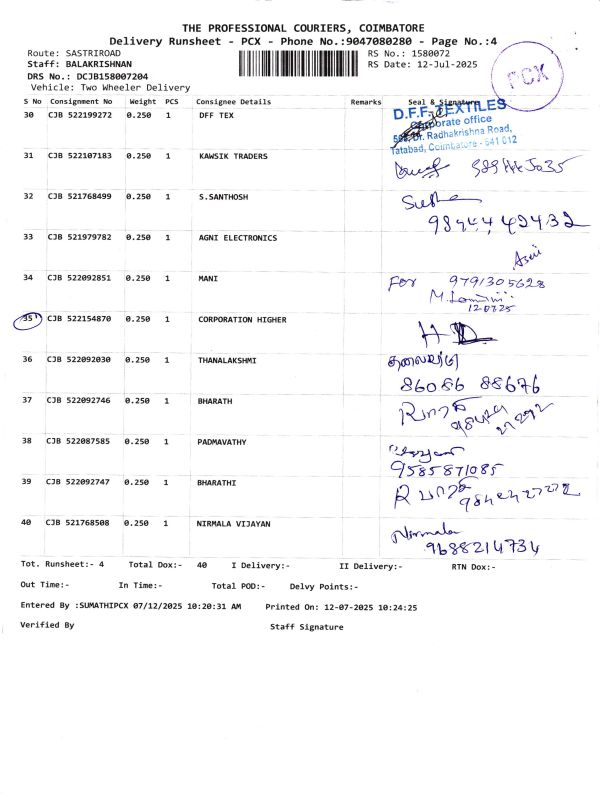 THE PROFESSIONAL COURIERS, COIMBATORE
Delivery Runsheet - PCX - Phone No.:9047080280 - Page No.:4
Route: SASTRIROAD RS No.: 1580072
Staff: BALAKRISHNAN RS Date: 12-Jul-2025
DRS No.: DCJB158007204
Vehicle: Two Wheeler Delivery
PCX
S No Consignment No Weight PCS Consignee Details Remarks Seal & Signature
30 CJB 522199272 0.250 1 DFF TEX
D.F.F. TEXTILES
Corporate office
Dr. Radhakrishna Road,
Tatabad, Coimbatore - 641 012
31 CJB 522107183 0.250 1 KAWSIK TRADERS
32 CJB 521768499 0.250 1 S.SANTHOSH
33 CJB 521979782 0.250 1 AGNI ELECTRONICS
34 CJB 522092851 0.250 1 MANI For 9791305628
35 CJB 522154870 0.250 1 CORPORATION HIGHER
36 CJB 522092030 0.250 1 THANALAKSHMI
86086 88676
37 CJB 522092746 0.250 1 BHARATH
38 CJB 522087585 0.250 1 PADMAVATHY
9585871085
39 CJB 522092747 0.250 1 BHARATHI
40 CJB 521768508 0.250 1 NIRMALA VIJAYAN Nirmala
9688214734
Tot. Runsheet:- 4 Total Dox:- 40 I Delivery:- II Delivery:- RTN Dox:-
Out Time:- In Time:- Total POD:- Delvy Points:-
Entered By :SUMATHIPCX 07/12/2025 10:20:31 AM Printed On: 12-07-2025 10:24:25
Verified By Staff Signature